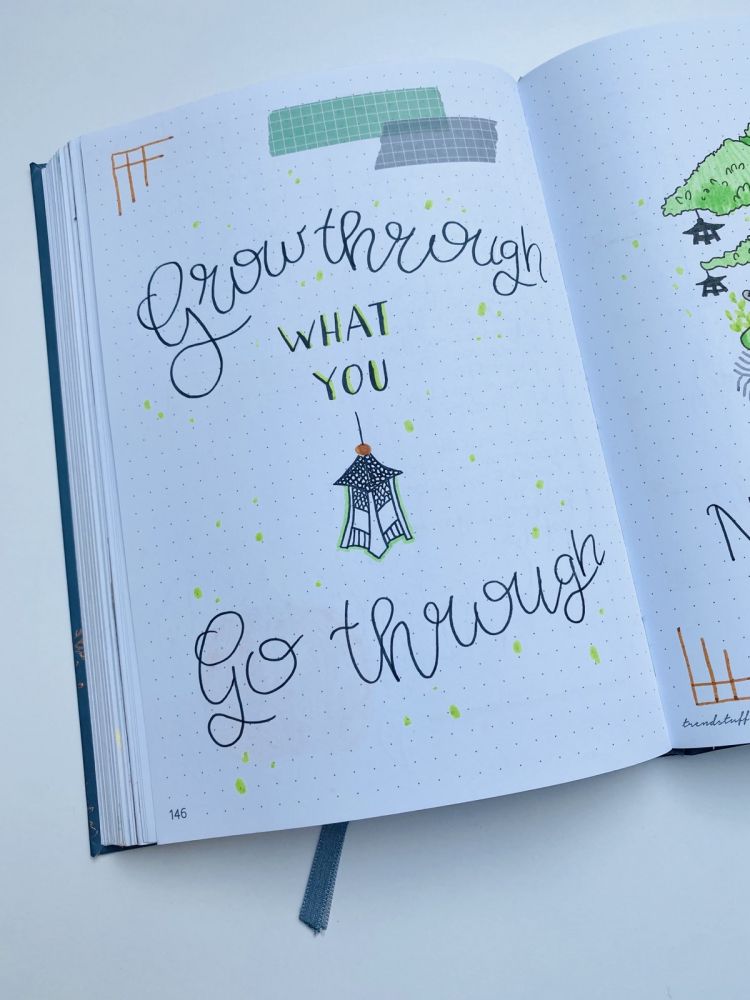 Grow through
WHAT
YOU
Go through
146
N